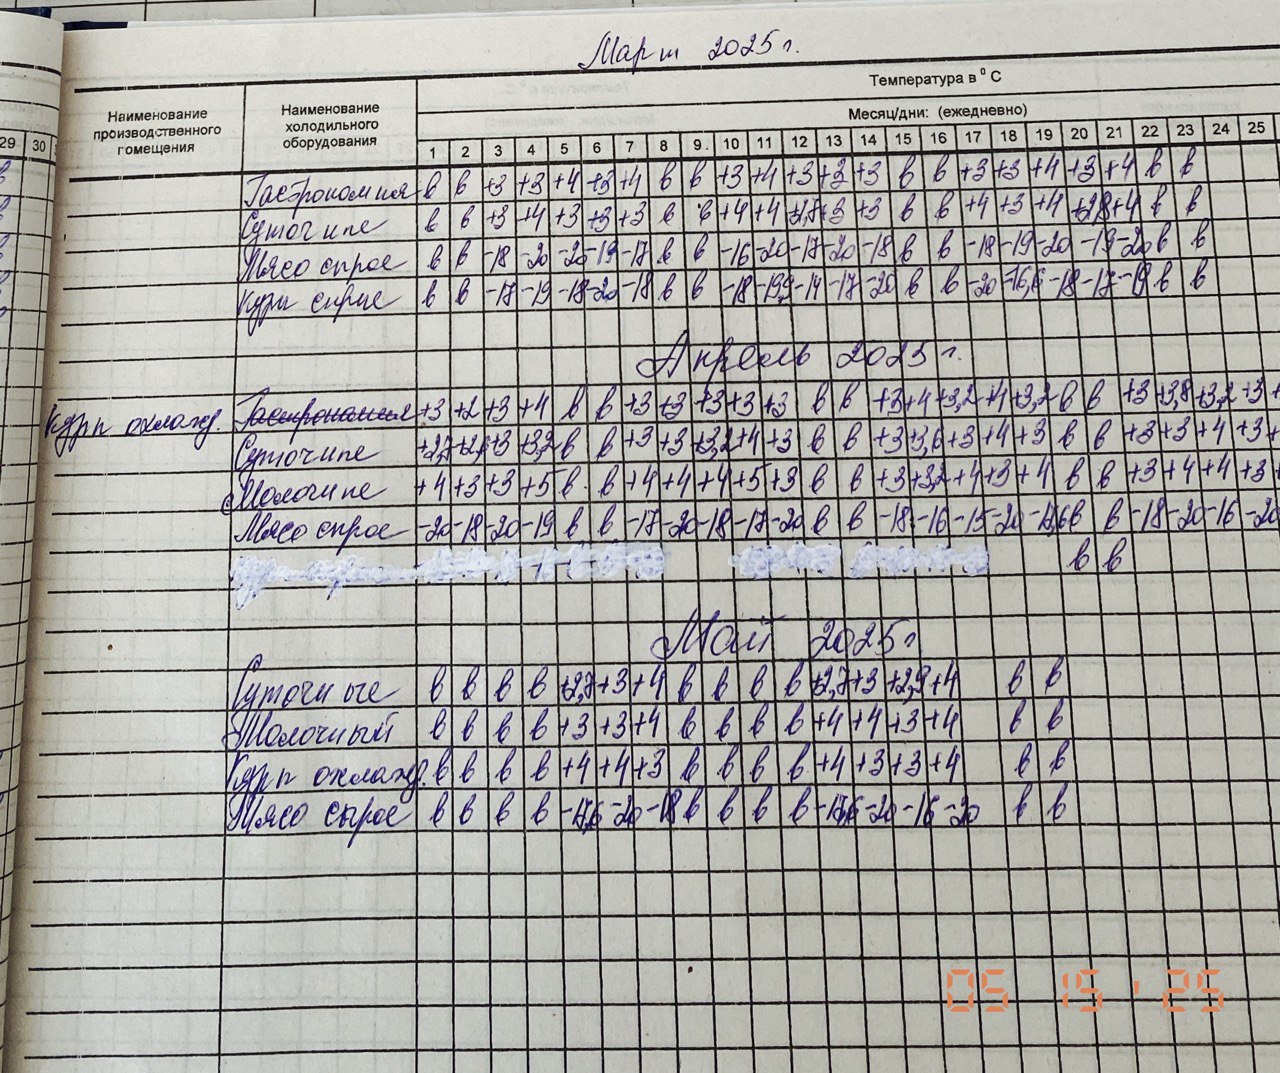 Март 2025 г.
Температура в ⁰ С
Наименование производственного помещения
Наименование холодильного оборудования
Месяц/дни: (ежедневно)
29 30 1 2 3 4 5 6 7 8 9. 10 11 12 13 14 15 16 17 18 19 20 21 22 23 24 25
Гастрономия в в +3 +3 +4 +3 +4 в в +3 +4 +3 +3 +3 в в +3 +3 +4 +3 +4 в в
Суточные в в +3 +4 +3 +3 +3 в в +4 +4 +3 +3 в в +4 +3 +4 +2,8 +4 в в
Мясо сырое в в -18 -20 -20 -19 -17 в в -16 -20 -17 -20 -18 в в -18 -19 -20 -19 -20 в в
Куры сырые в в -17 -19 -18 -20 -18 в в -18 -19,9 -14 -17 -20 в в -20 -16,6 -18 -17 -19 в в
Апрель 2025 г.
Куры охлажд. Гастрономия +3 +2 +3 +4 в в +3 +3 +3 +3 +3 в в +3 +4 +3,2 +4 +3,2 в в +3 +3,8 +3,2 +3
Суточные +2,7 +2,9 +3 +3,2 в в +3 +3 +3,2 +4 +3 в в +3 +3,6 +3 +4 +3 в в +3 +3 +4 +3
Молочные +4 +3 +3 +5 в в +4 +4 +4 +5 +3 в в +3 +3,2 +4 +3 +4 в в +3 +4 +4 +3
Мясо сырое -20 -18 -20 -19 в в -17 -20 -18 -17 -20 в в -18 -16 -15 -20 в в -18 -20 -16 -20
в в
Май 2025 г
Суточные в в в в +2,7 +3 +4 в в в в +2,7 +3 +2,9 +4 в в
Молочный в в в в +3 +3 +4 в в в в +4 +4 +3 +4 в в
Куры охлажд. в в в в +4 +4 +3 в в в в +4 +3 +3 +4 в в
Мясо сырое в в в в -17,6 -20 -18 в в в в -17,6 -20 -16 -20 в в
05 15 ' 25